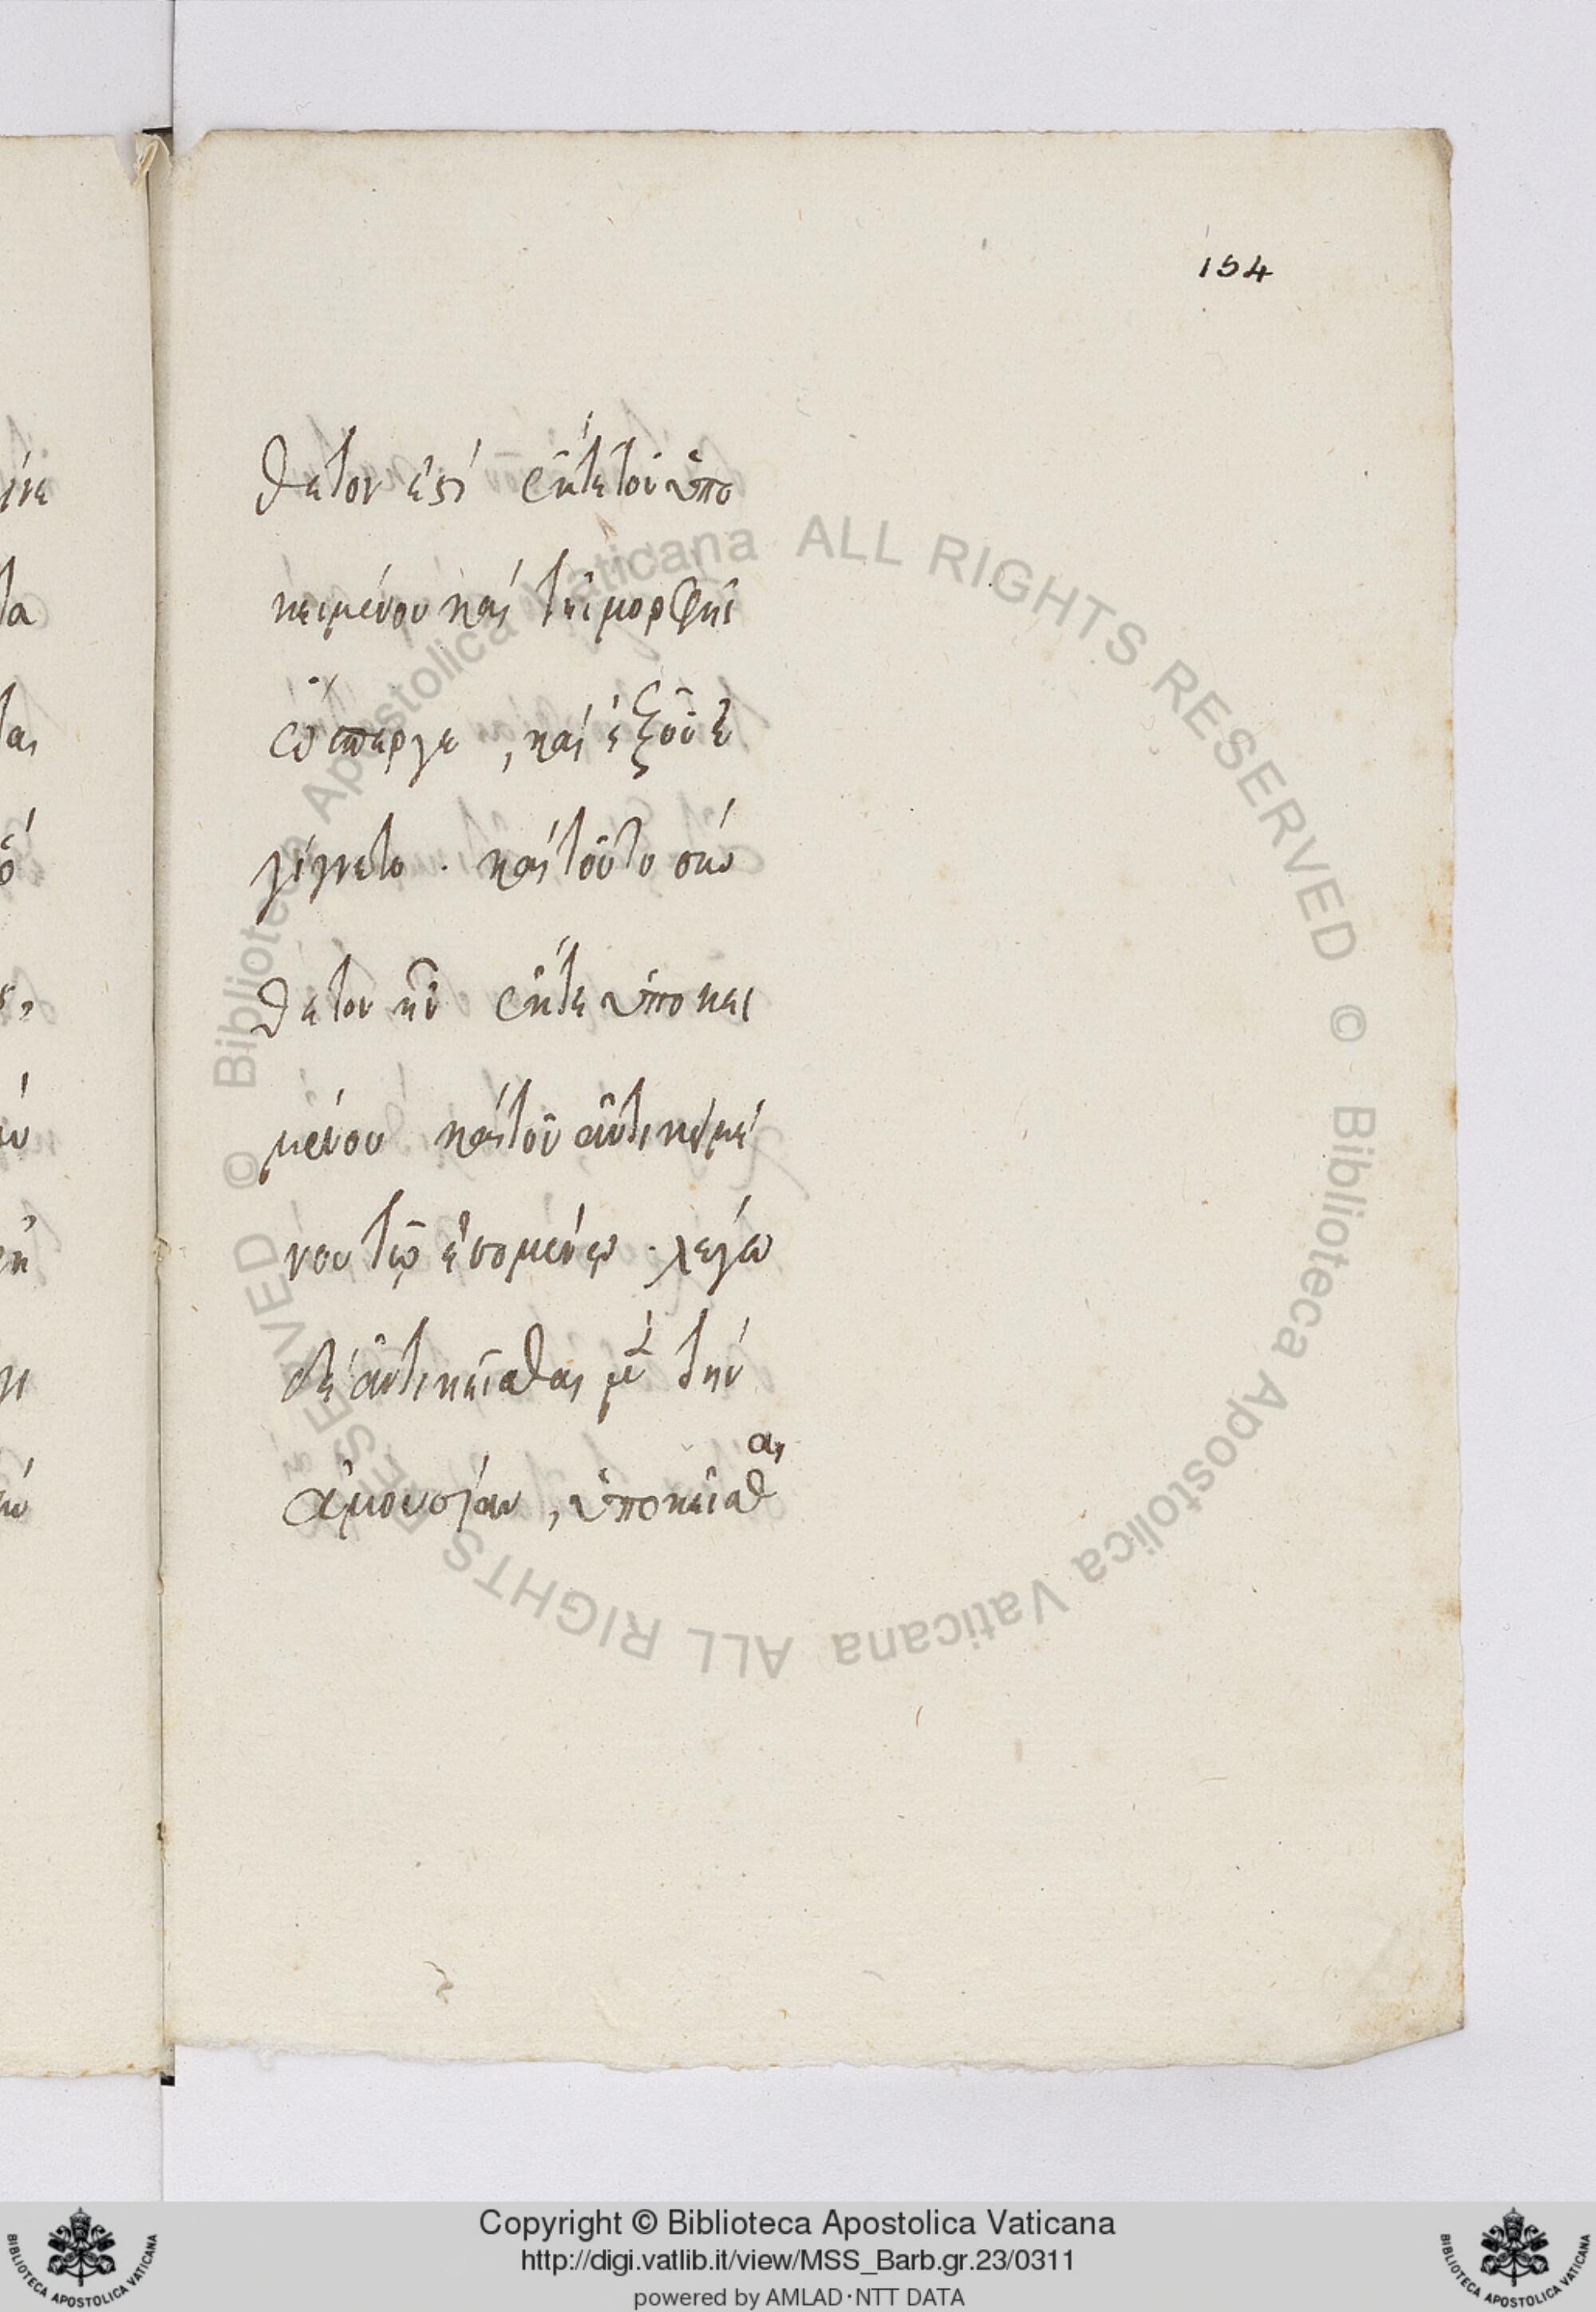 154
θετον ἐστὶ ἔκ τε τοῦ ὑπο
κειμένου καὶ τῆς μορφῆς
, καὶ ἐξ οὗ ἐ
γίγνετο . καὶ τοῦτο σύν
θετον ἦν ἔκ τε ὑποκει
μένου καὶ τοῦ ἀντικειμέ
νου τῷ ἐσομένῳ . λέγω
δὲ ἀντικεῖσθαι μὲν τὴν
ἀμουσίαν , ὑποκεῖσθαι
© Biblioteca Apostolica Vaticana ALL RIGHTS RESERVED © Biblioteca Apostolica Vaticana ALL RIGHTS RESERVED
BIBLIOTECA APOSTOLICA VATICANA
Copyright © Biblioteca Apostolica Vaticana
http://digi.vatlib.it/view/MSS_Barb.gr.23/0311
powered by AMLAD·NTT DATA
BIBLIOTECA APOSTOLICA VATICANA